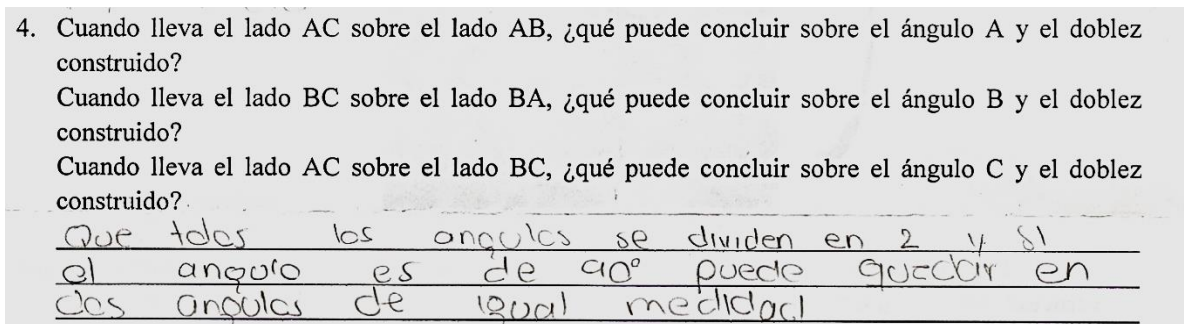 4. Cuando lleva el lado AC sobre el lado AB, ¿qué puede concluir sobre el ángulo A y el doblez
construido?
Cuando lleva el lado BC sobre el lado BA, ¿qué puede concluir sobre el ángulo B y el doblez
construido?
Cuando lleva el lado AC sobre el lado BC, ¿qué puede concluir sobre el ángulo C y el doblez
construido?
Que todos los angulos se dividen en 2 y si
el angulo es de 90° puede quedar en
dos angulos de igual medidad